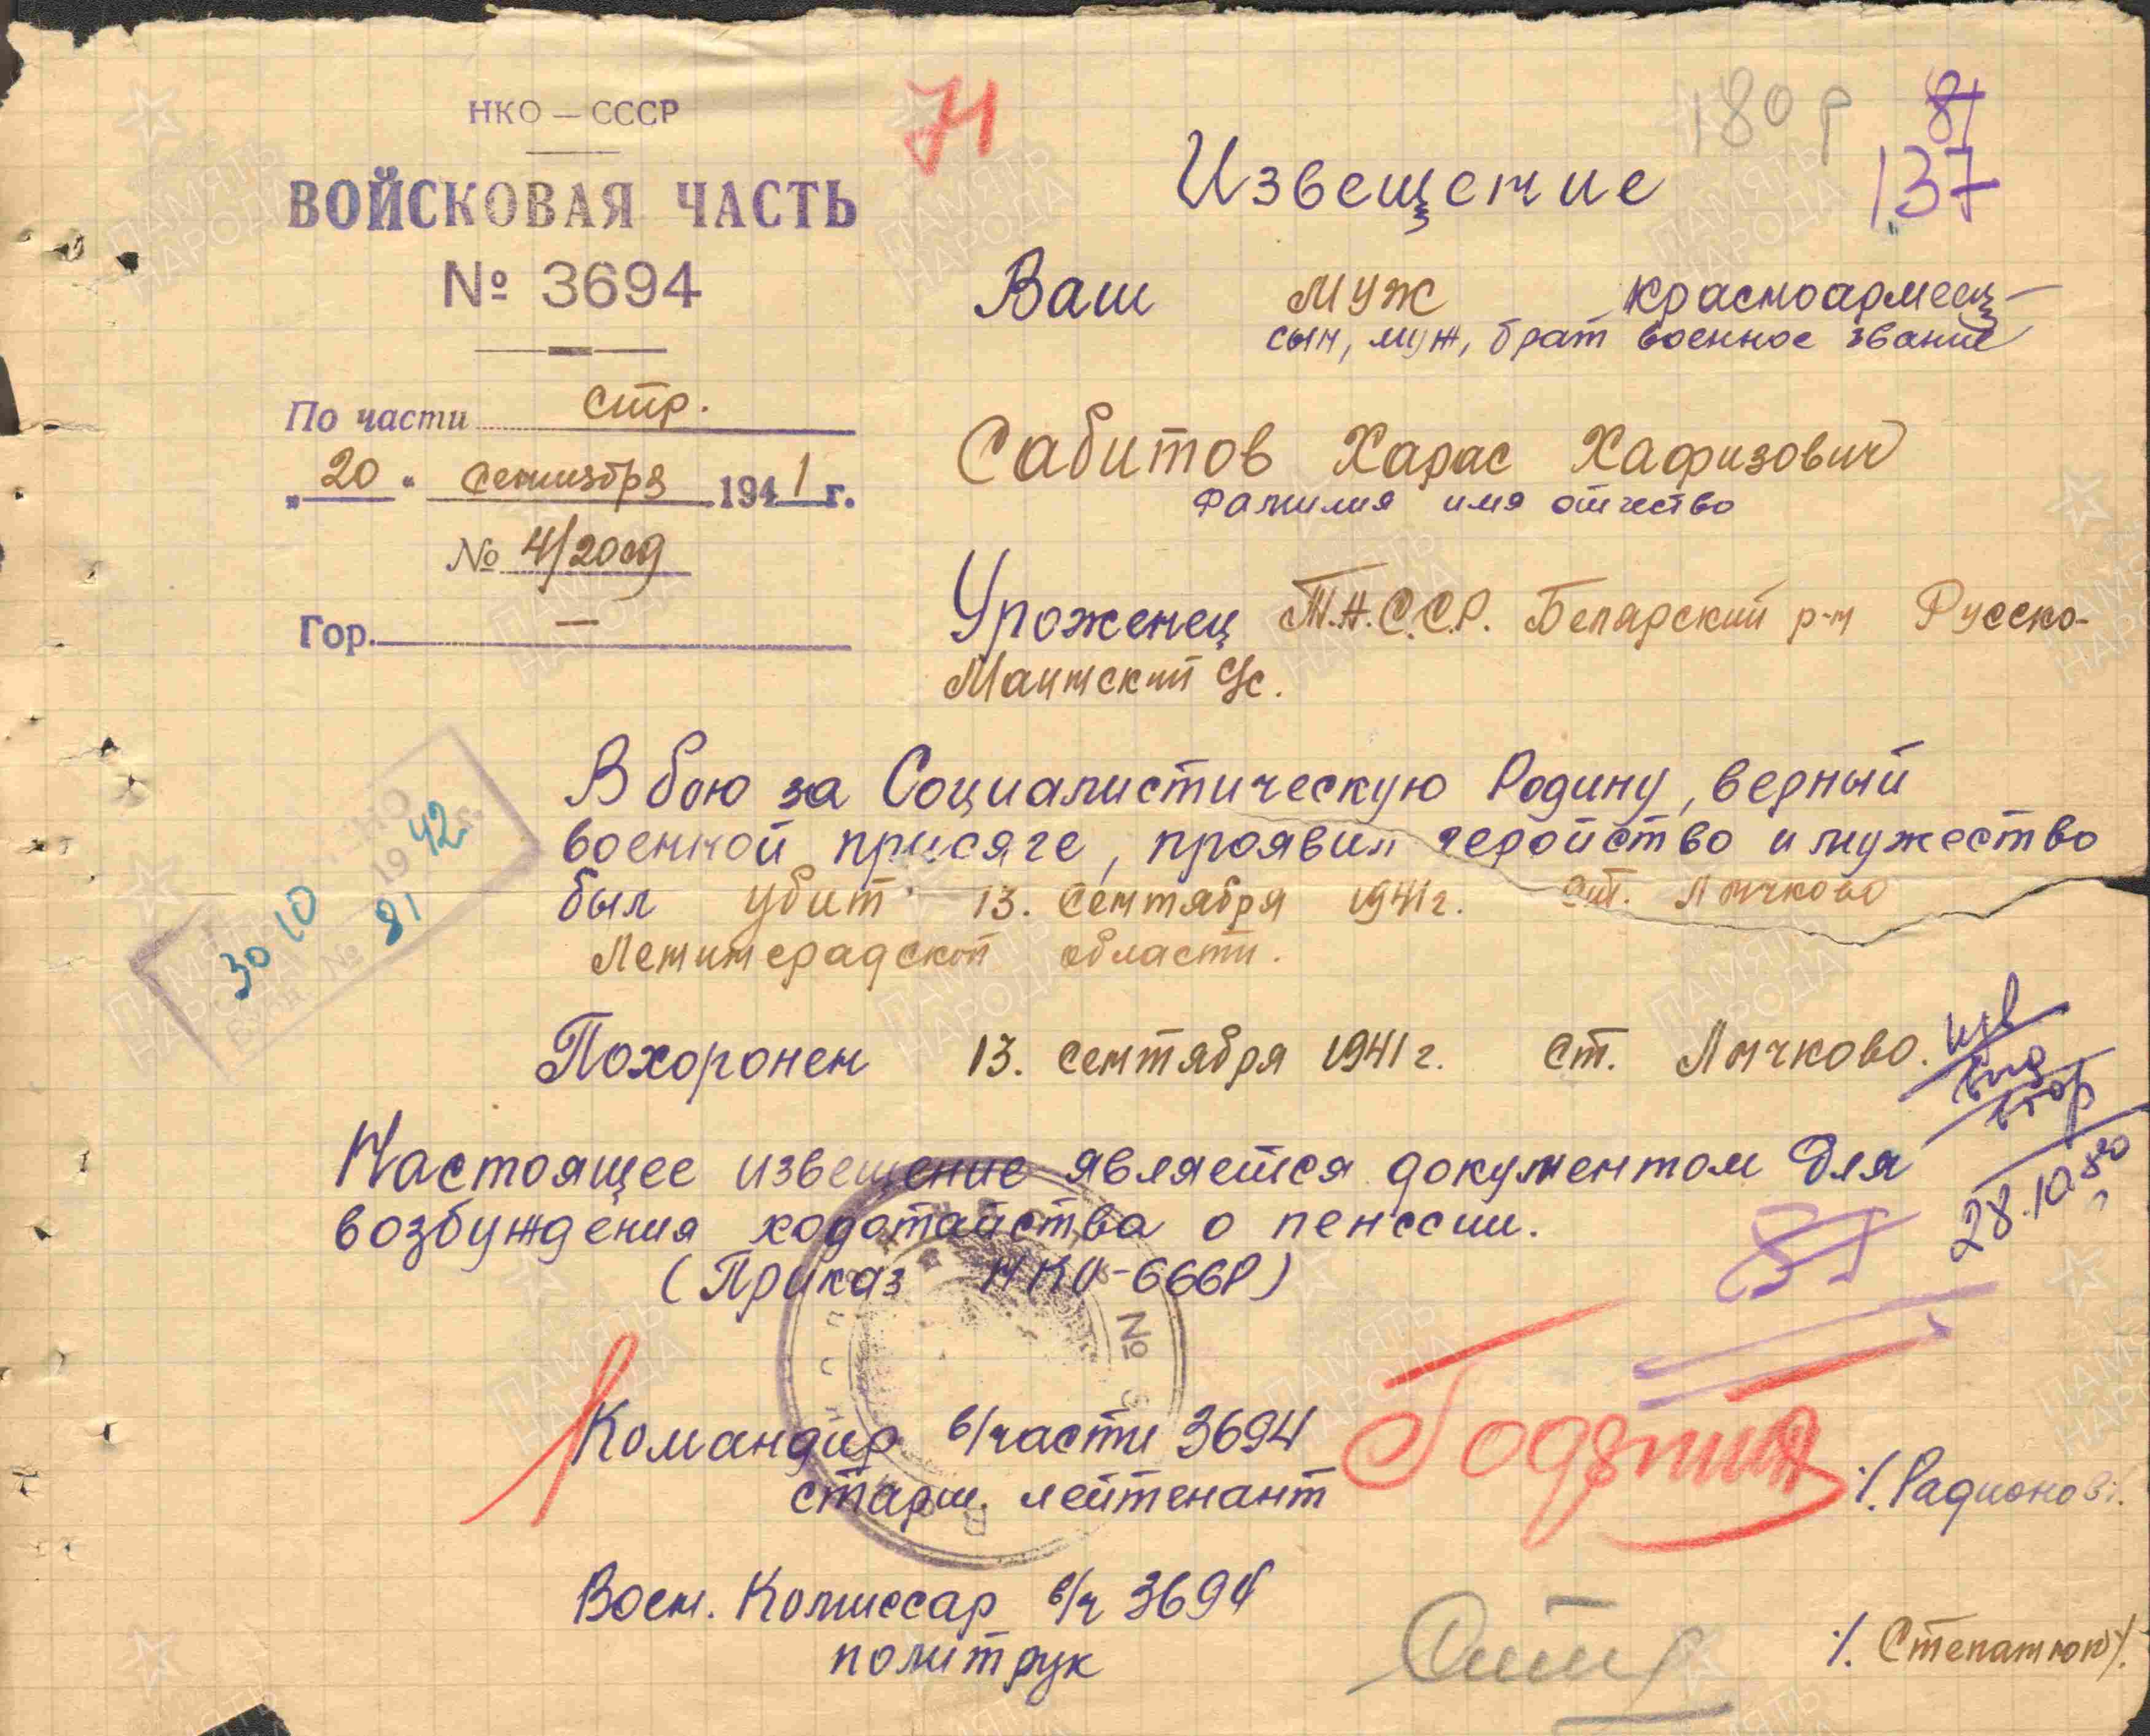 НКО — СССР
ВОЙСКОВАЯ ЧАСТЬ
№ 3694
По части стр.
„20“ сентября 1941 г.
№ 4/2009
Гор. —
71
180 р
81
137
Извещение
Ваш муж красноармеец
сын, муж, брат военное звание
Сабитов Харас Хафизович
Фамилия имя отчество
Уроженец Т.А.С.С.Р. Белярский р-н Русско-
Маинский с/с.
В бою за Социалистическую Родину, верный
военной присяге, проявил геройство и мужество
был убит 13. сентября 1941 г. ст. Лычково
Ленинградской области.
Похоронен 13. сентября 1941 г. ст. Лычково.
1942 г.
30 10
Вход. № 81
Настоящее извещение является документом для
возбуждения ходотайства о пенссии.
(Приказ НКО-666Р)
28.10.
81
Командир в/части 3694
старш. лейтенант
/. Радионов /.
Воен. Комиссар в/ч 3694
политрук
/. Степанюк /.
ПАМЯТЬ
НАРОДА